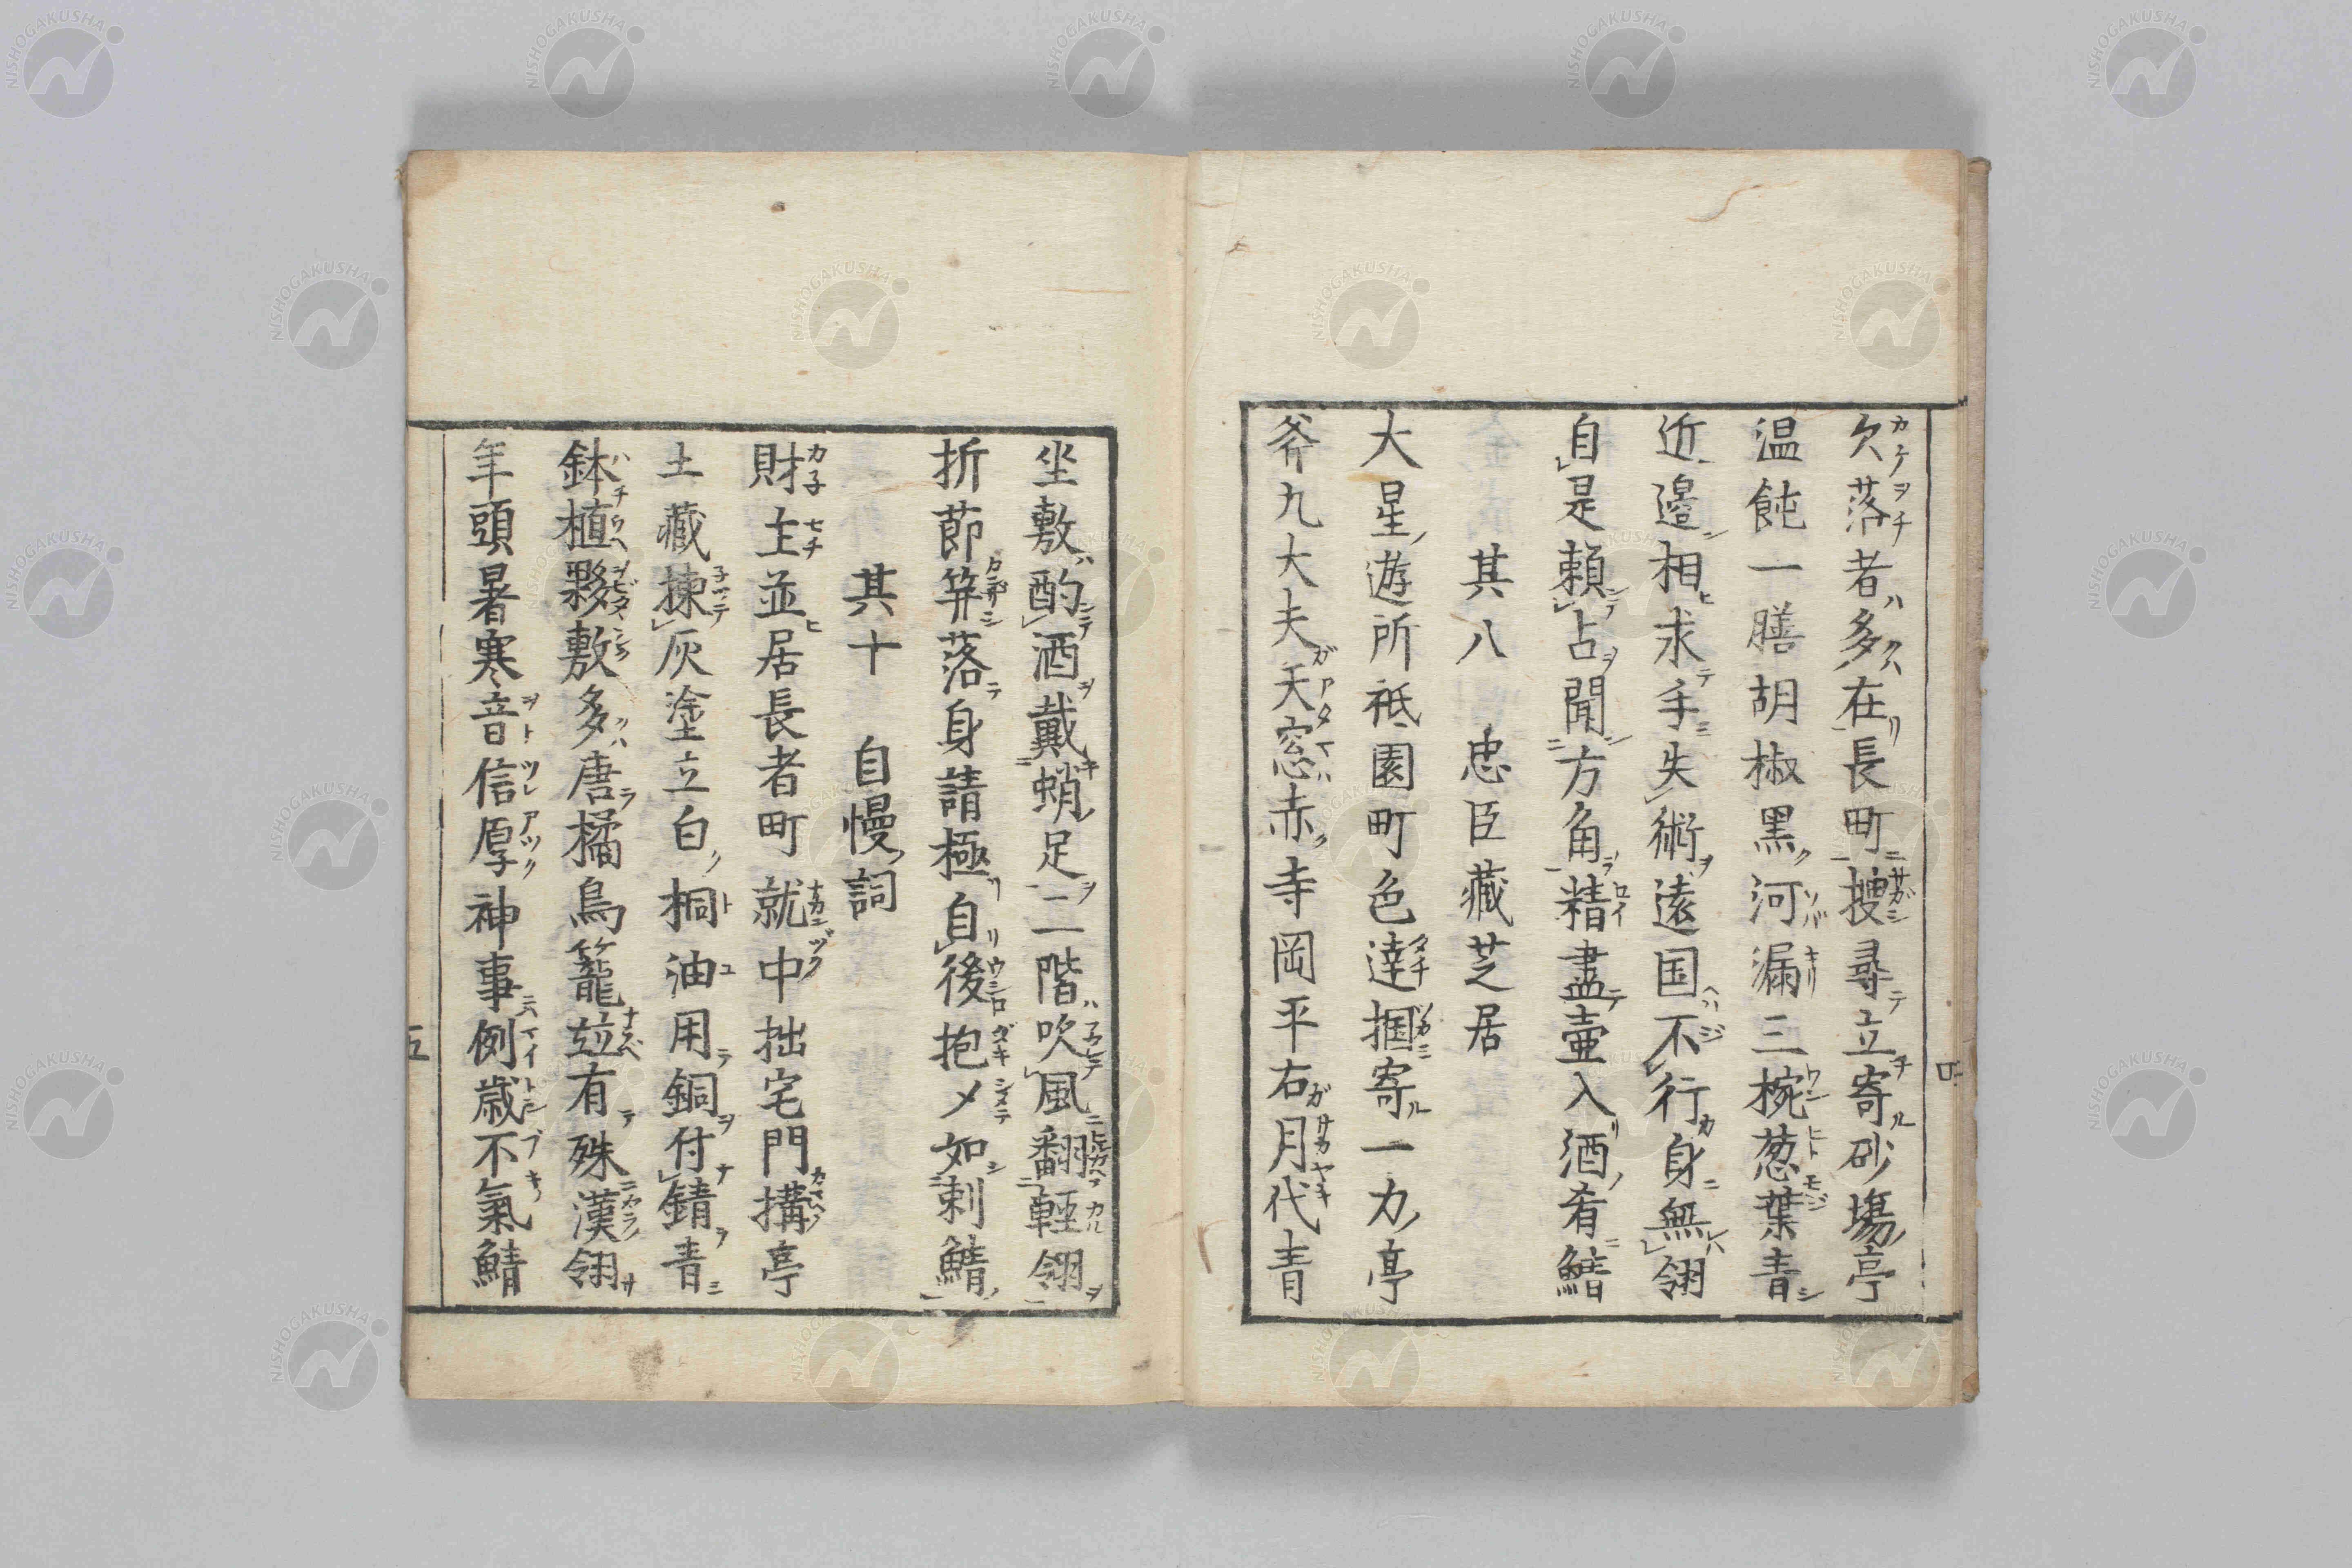 欠落者多在長町搜尋立寄砂場亭
温飩一膳胡椒黑河漏三椀葱葉青
近邉相求手失術遠国不行身無翎
自是頼占聞方角精盡壷入酒肴鰭
其八　忠臣藏芝居
大星遊所祗園町色達掴寄一力亭
斧九大夫天窓赤寺岡平右月代青
四
坐敷酌酒戴蛸足二階吹風翻輕翎
折節笄落身請極自後抱〆如刺鯖
其十　自慢詞
財主並居長者町就中拙宅門搆亭
土藏揀灰塗立白桐油用銅付錆青
鉢植夥敷多唐橘鳥籠竝有殊漢翎
年頭暑寒音信厚神事例歳不氣鯖
五
NISHOGAKUSHA